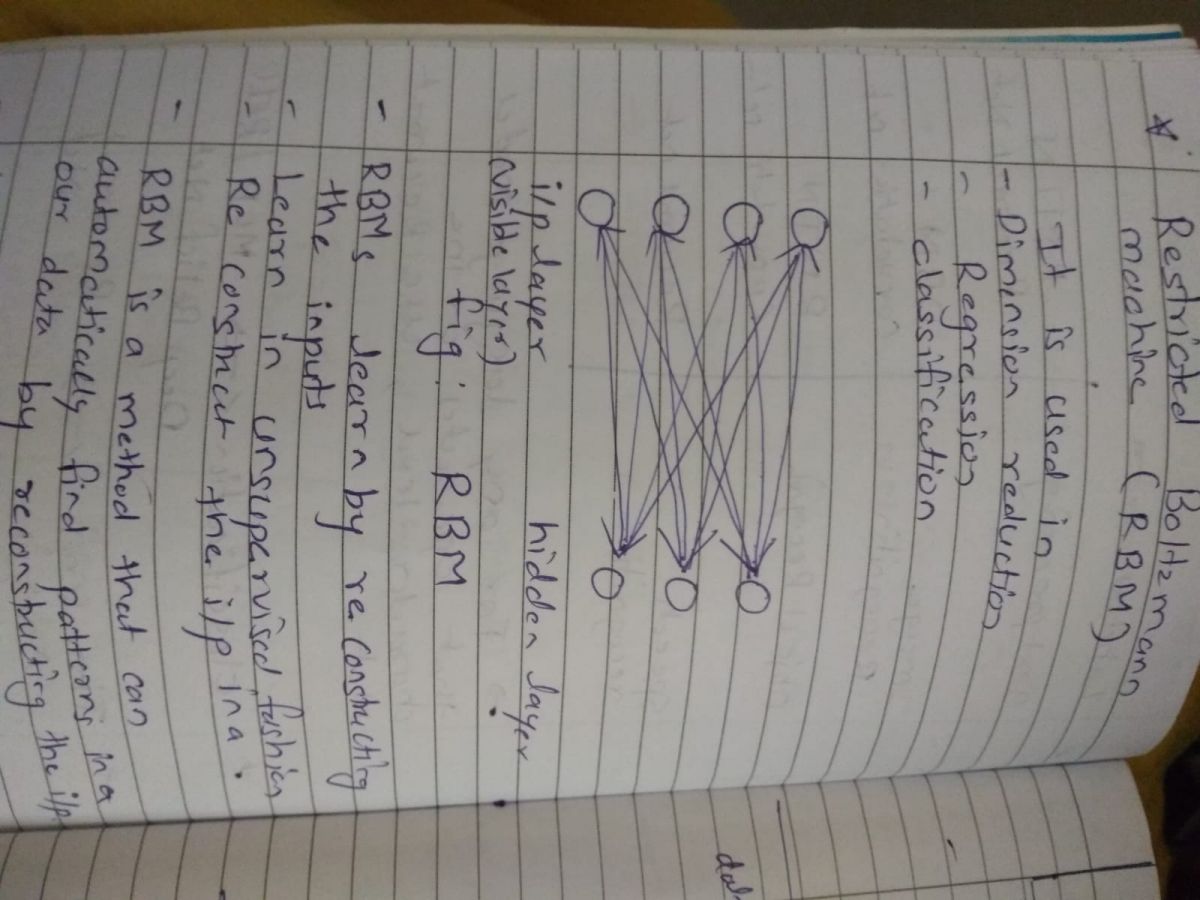 * Restricted Boltzmann
machine (RBM)
It is used in
- Diminsion reduction
- Regression
- classification
i/p layer hidden layer
(visible layer)
fig: RBM
- RBMs learn by re constructing
the inputs
- Learn in unsupervised fashion
- Re construct the i/p in a
- RBM is a method that can
automatically find patterns in a
our data by reconstructing the i/p